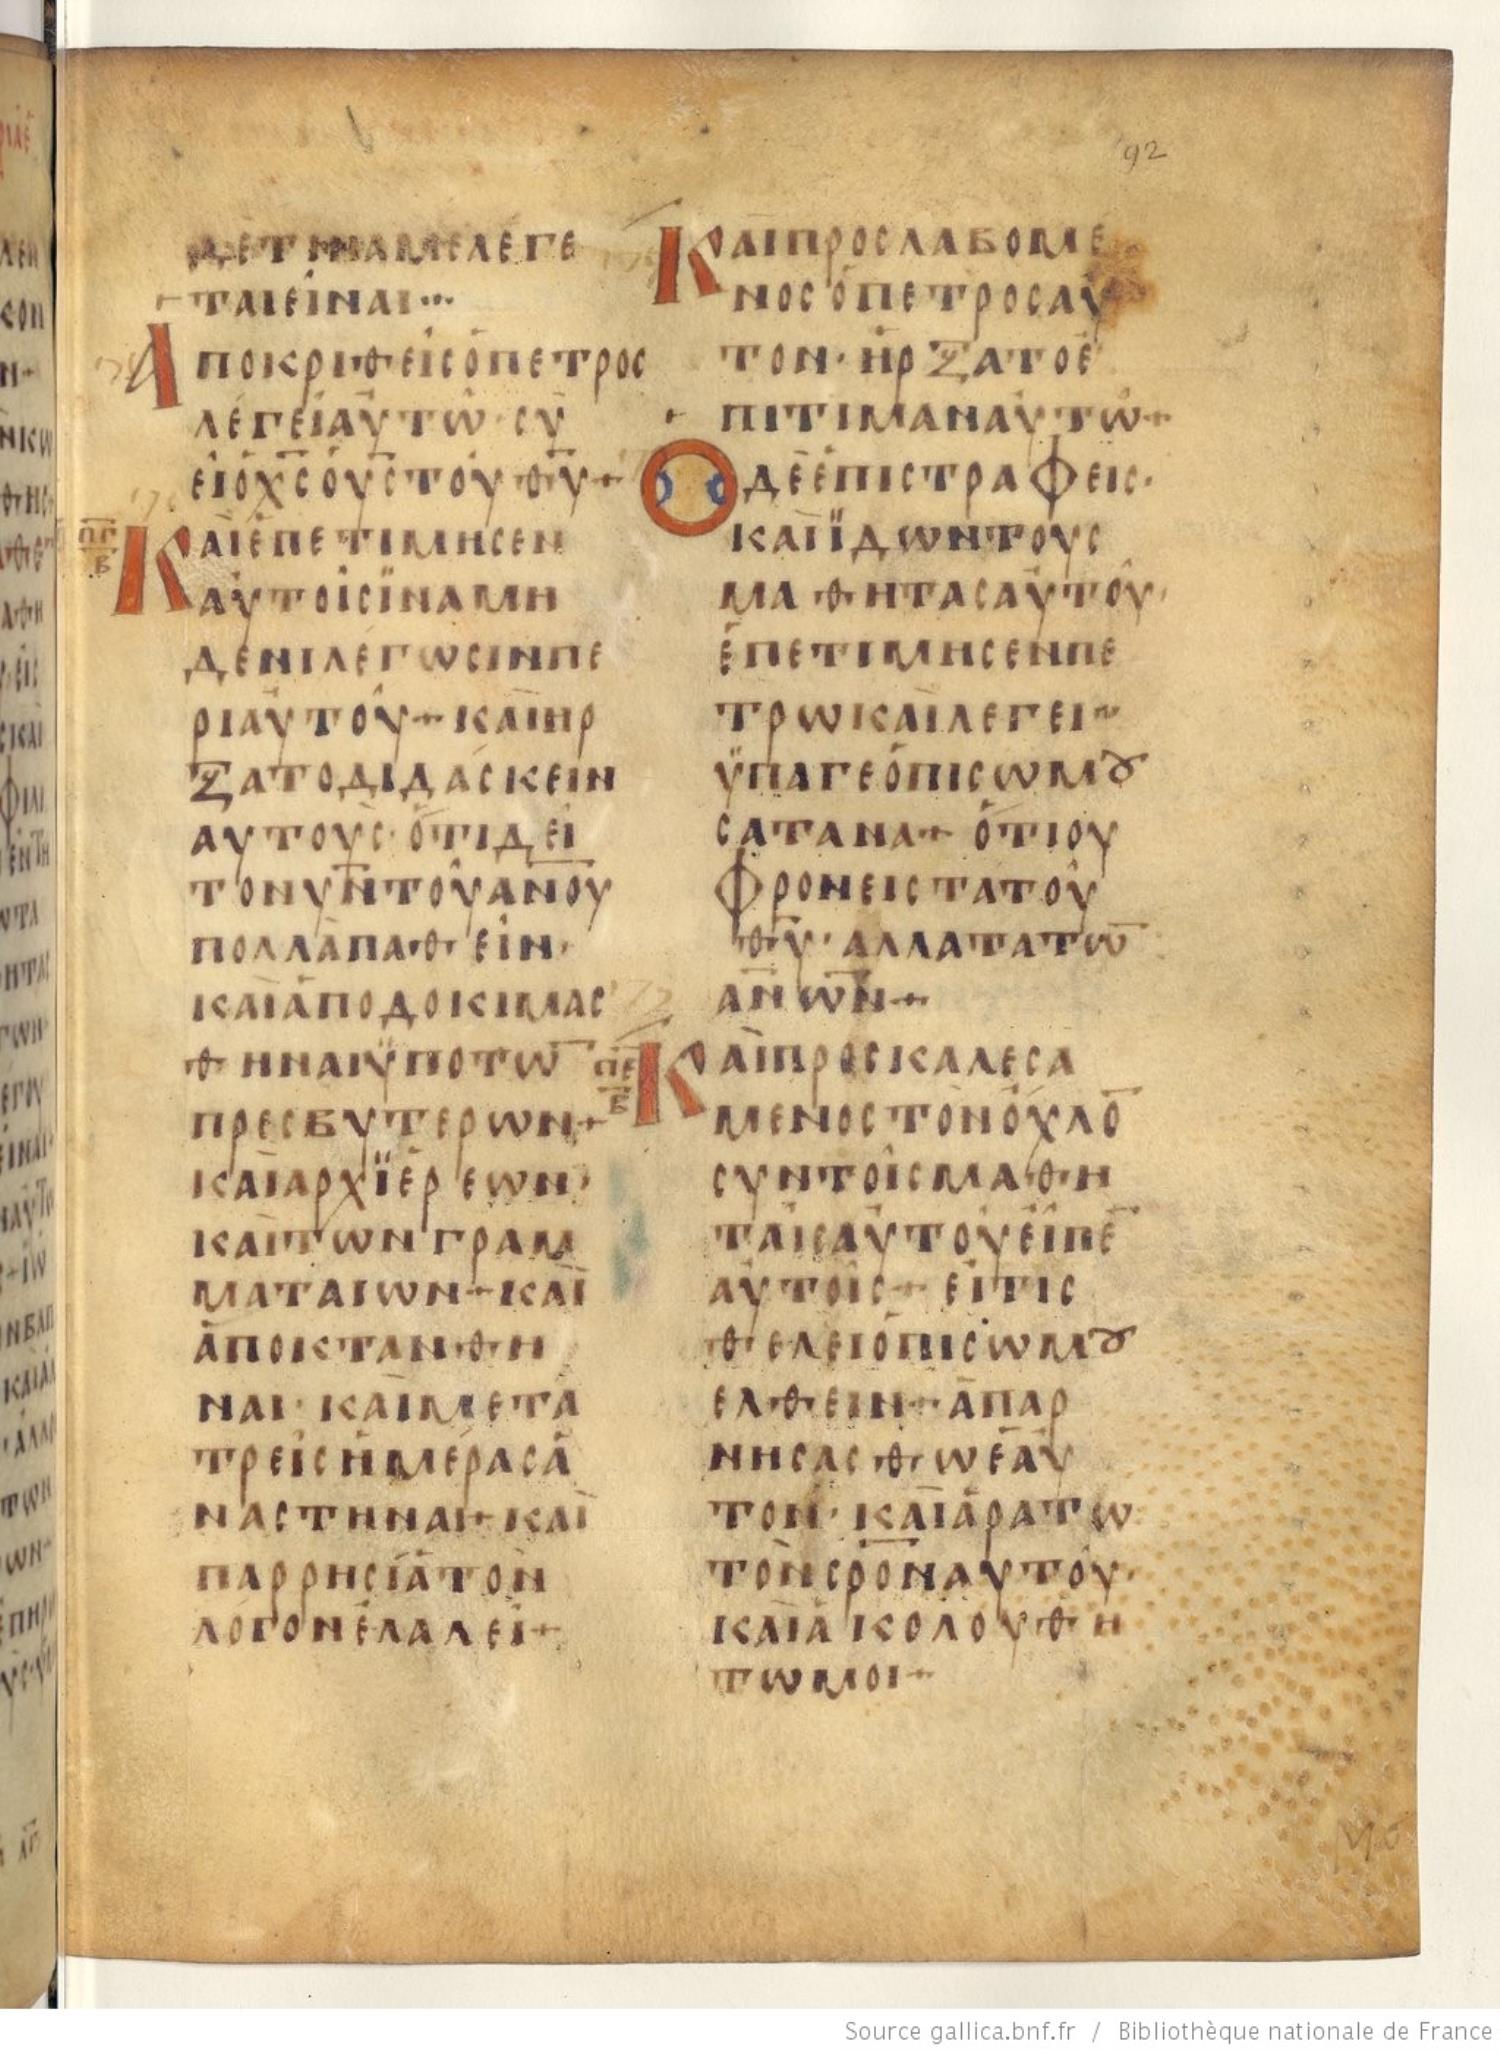 92
ΔΕΤΙΝΑΜΕΛΕΓΕ
ΤΑΙΕΙΝΑΙ
ΑΠΟΚΡΙΘΕΙΣΟΠΕΤΡΟΣ
ΛΕΓΕΙΑΥΤΩ· ΣΥ
ΕΙΟΧ̅Σ̅ΟΥ̅Σ̅ΤΟΥΘ̅Υ̅+
Π̅Γ̅
Β
ΚΑΙΕΠΕΤΙΜΗΣΕΝ
ΑΥΤΟΙΣΪΝΑΜΗ
ΔΕΝΙΛΕΓΩΣΙΝΠΕ
ΡΙΑΥΤΟΥ+ΚΑΙΗΡ
ΞΑΤΟΔΙΔΑΣΚΕΙΝ
ΑΥΤΟΥΣ· ΟΤΙΔΕΙ
ΤΟΝΥ̅Ν̅ΤΟΥΑ̅Ν̅Ο̅Υ̅
ΠΟΛΛΑΠΑΘΕΙΝ·
ΚΑΙΑΠΟΔΟΚΙΜΑΣ
ΘΗΝΑΙΫΠΟΤΩ̅
ΠΡΕΣΒΥΤΕΡΩΝ+
ΚΑΙΑΡΧΪΕΡΕΩΝ·
ΚΑΙΤΩΝΓΡΑΜ
ΜΑΤΑΙΩΝ+ΚΑΙ
ΑΠΟΚΤΑΝΘΗ
ΝΑΙ· ΚΑΙΜΕΤΑ
ΤΡΕΙΣΗΜΕΡΑΣΑ
ΝΑΣΤΗΝΑΙ+ΚΑΙ
ΠΑΡΡΗΣΙΑΤΟΝ
ΛΟΓΟΝΕΛΑΛΕΙ+
ΚΑΙΠΡΟΣΛΑΒΟΜΕ
ΝΟΣΟΠΕΤΡΟΣΑΥ
ΤΟΝ· ΗΡΞΑΤΟΕ
ΠΙΤΙΜΑΝΑΥΤΩ+
ΟΔΕΕΠΙΣΤΡΑΦΕΙΣ·
ΚΑΙΪΔΩΝΤΟΥΣ
ΜΑΘΗΤΑΣΑΥΤΟΥ·
ΕΠΕΤΙΜΗΣΕΝΠΕ
ΤΡΩΚΑΙΛΕΓΕΙ
ΫΠΑΓΕΟΠΙΣΩΜȢ
ΣΑΤΑΝΑ+ ΟΤΙΟΥ
ΦΡΟΝΕΙΣΤΑΤΟΥ
Θ̅Υ̅· ΑΛΛΑΤΑΤΩ̅
Α̅Ν̅Ω̅Ν̅+
Π̅Ε̅
Β
ΚΑΙΠΡΟΣΚΑΛΕΣΑ
ΜΕΝΟΣΤΟΝΟΧΛΟ̅
ΣΥΝΤΟΙΣΜΑΘΗ
ΤΑΙΣΑΥΤΟΥΕΙΠΕ̅
ΑΥΤΟΙΣ+ ΕΙΤΙΣ
ΘΕΛΕΙΟΠΙΣΩΜȢ
ΕΛΘΕΙΝ+ ΑΠΑΡ
ΝΗΣΑΣΘΩΕΑΥ
ΤΟΝ· ΚΑΙΑΡΑΤΩ
ΤΟΝΣ̅Ρ̅Ο̅Ν̅ΑΥΤΟΥ·
ΚΑΙΑΚΟΛΟΥΘΗ
ΤΩΜΟΙ+
Source gallica.bnf.fr / Bibliothèque nationale de France